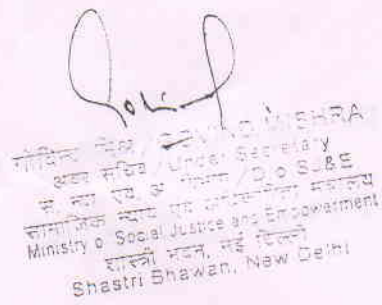 गोविन्द मिश्र / GOVIND MISHRA
अवर सचिव / Under Secretary
स. न्या एवं अ. विभाग / D/o SJ&E
सामाजिक न्याय एवं अधिकारिता मंत्रालय
Ministry o Social Justice and Empowerment
शास्त्री भवन, नई दिल्ली
Shastri Bhawan, New Delhi